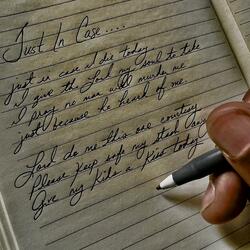 Just In Case....
just in case I die today
I give the Lord my soul to take
I pray no man will murder me
just because he heard of me.
Lord do me this one courtesy
Please keep safe my
Give my kids a kiss today